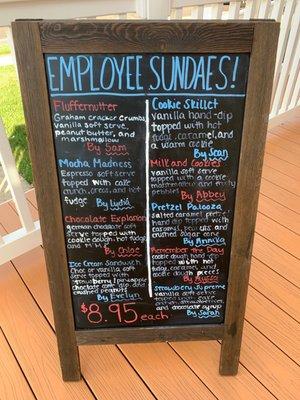 EMPLOYEE SUNDAES!
Fluffernutter
Graham Cracker Crumbs,
vanilla soft serve,
peanut butter, and
marshmallow
By Sam
Mocha Madness
Espresso soft serve
topped with cake
crunch, oreos, and
fudge By Lydia
Chocolate Explosion
german chocolate soft
serve topped with
cookie dough, hot fudge
By Chloe
Ice Cream Sandwich
Choc or vanilla soft
serve topped with
By Evelyn
Cookie Skillet
vanilla hand-dip
topped with hot
fudge, caramel, and
a warm cookie
By Sean
Milk and Cookies
vanilla soft serve
topped with
By Abbey
Pretzel Palooza
Salted caramel pretzel
hand dip topped with
By Annika
Remember the Day
cookie dough hand dip
topped with hot
fudge, caramel,
cookie dough pieces
Strawberry Supreme
vanilla soft serve
topped with
and chocolate syrup
By Sarah
$8.95 each